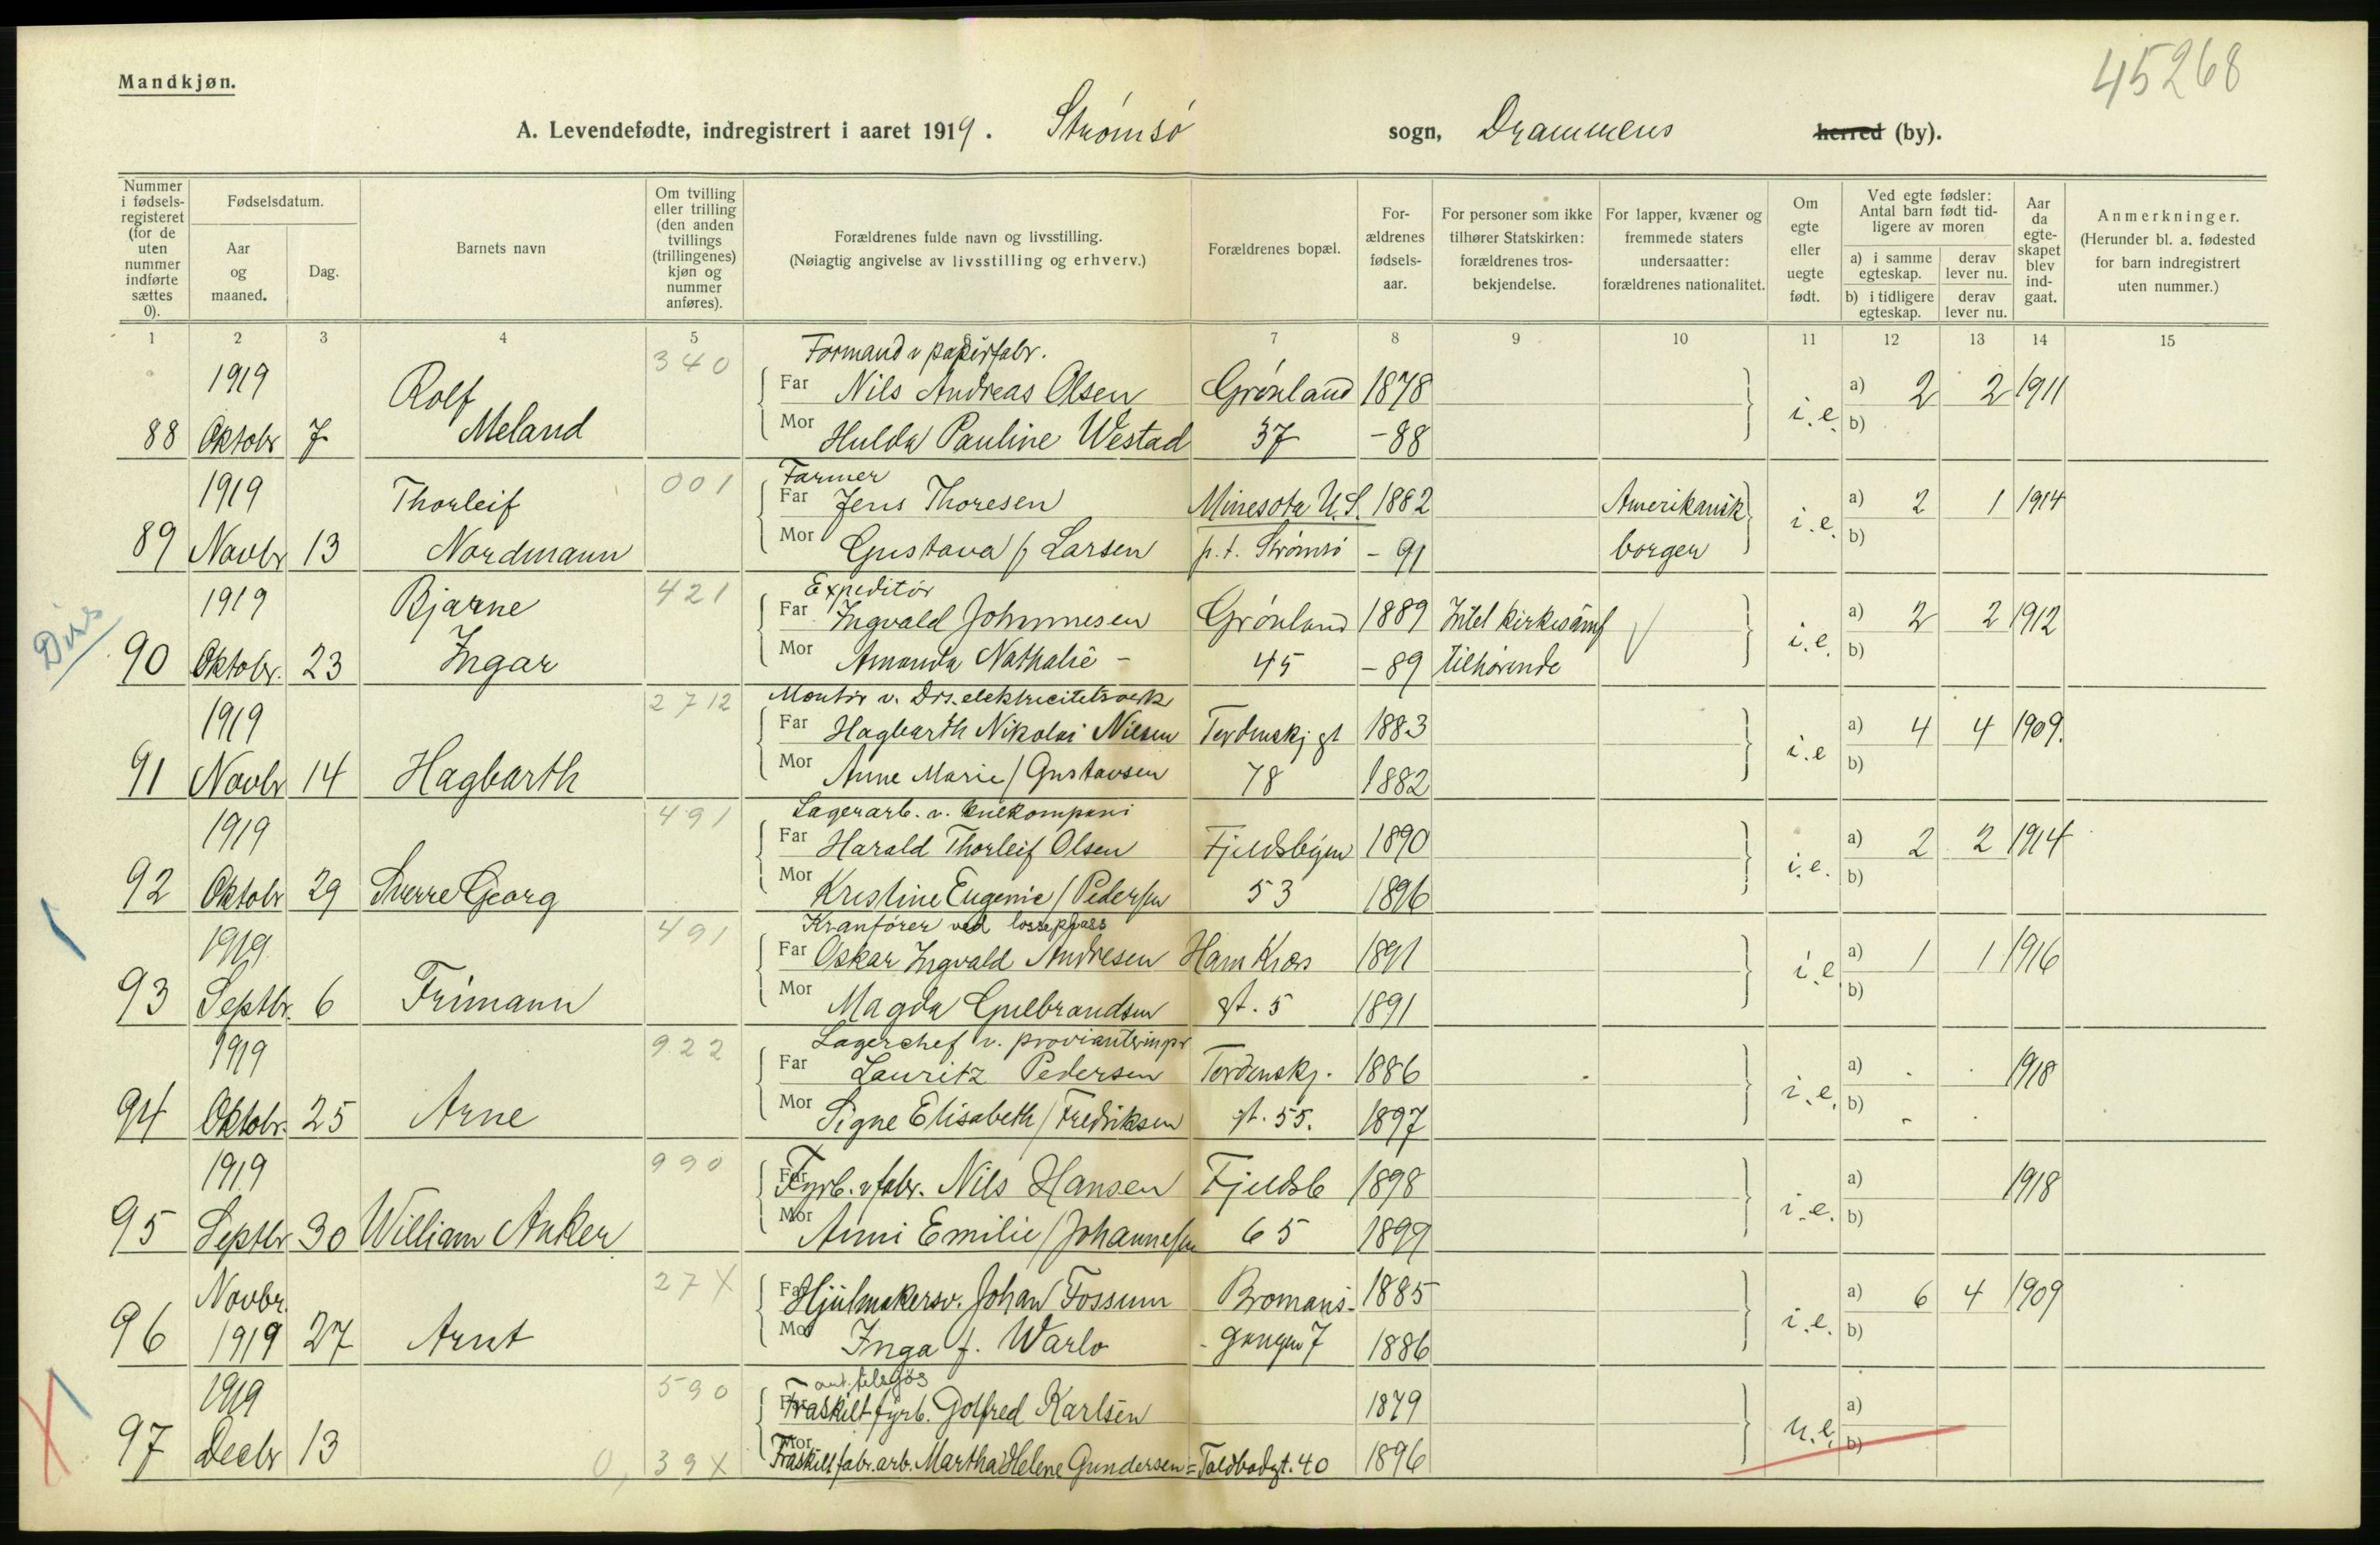 45268
Mandkjøn.
A. Levendefødte, indregistrert i aaret 1919. Strømsø sogn, Drammens herred (by).
Nummer i fødselsregisteret (for de uten nummer indførte sættes 0).
Fødselsdatum.
Aar og maaned.
Dag.
Barnets navn
Om tvilling eller trilling (den anden tvillings (trillingenes) kjøn og nummer anføres).
Forældrenes fulde navn og livsstilling.
(Nøiagtig angivelse av livsstilling og erhverv.)
Forældrenes bopæl.
Forældrenes fødselsaar.
For personer som ikke tilhører Statskirken: forældrenes trosbekjendelse.
For lapper, kvæner og fremmede staters undersaatter: forældrenes nationalitet.
Om egte eller uegte født.
Ved egte fødsler: Antal barn født tidligere av moren
a) i samme egteskap. derav lever nu.
b) i tidligere egteskap. derav lever nu.
Aar da egteskapet blev indgaat.
Anmerkninger.
(Herunder bl. a. fødested for barn indregistrert uten nummer.)
1 2 3 4 5 7 8 9 10 11 12 13 14 15
340 Formand v papirfabr.
1919 Rolf Far Nils Andreas Olsen Grønland 1878 a) 2 2 1911
88 Oktobr 7 Meland Mor Hulda Pauline Westad 37 -88 i.e. b)
001 Farmer
1919 Thorleif Far Jens Thoresen Minesota U.S. 1882 Amerikansk a) 2 1 1914
89 Novbr 13 Nordmann Mor Gustava f Larsen p.t. Strømsø - 91 borger i.e. b)
421 Expeditør
1919 Bjarne Far Ingvald Johannesen Grønland 1889 Intet kirkesamf a) 2 2 1912
Drs
90 Oktobr. 23 Ingar Mor Amanda Nathalie - 45 - 89 tilhørende i.e. b)
2712 Montør v. Drs. elektricitetsverk
1919 Far Hagbarth Nikolai Nilsen Tordenskj gt 1883 a) 4 4 1909.
91 Novbr 14 Hagbarth Mor Anne Marie / Gustavsen 78 1882 i.e b)
491 Lagerarb. v. kulkompani
1919 Far Harald Thorleif Olsen Fjeldsbyen 1890 a) 2 2 1914
92 Oktobr 29 Sverre Georg Mor Kristine Eugenie / Pedersen 53 1896 i.e. b)
491 Kranfører ved losseplass
1919. Far Oskar Ingvald Andresen Ham Kiærs 1891 a) 1 1 1916
93 Septbr. 6 Frimann Mor Magda Gulbrandsen gt. 5 1891 i.e b)
922 Lagerchef v. provianteringsr
1919 Far Lauritz Pedersen Tordenskj. 1886 a) 1918
94 Oktobr. 25 Arne Mor Signe Elisabeth / Fredriksen gt. 55. 1897 i.e. b)
990
1919 Far Fyrb. v fabr. Nils Hansen Fjeldsb 1898 a) 1918
95 Septbr 30 William Anker Mor Anni Emilie / Johannesen 65 1899 i.e. b)
27X
Novbr. Far Hjulmakersv. Johan Fossum Bromans- 1885 a) 6 4 1909
96 1919 27 Arnt Mor Inga f. Warlo - gangen 7 1886 i.e. b)
590
1919 Far Fraskilt fyrb. Golfred Karlsen 1879 a)
97 Decbr 13 0, 39X Mor Fraskilt fabr. arb. Martha Helene Gundersen = Toldbodgt. 40 1896 u.e. b)